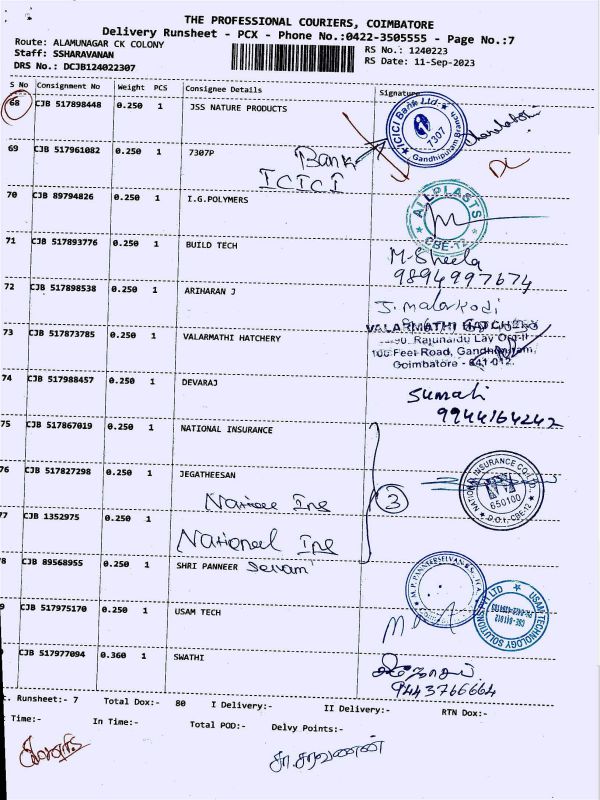 THE PROFESSIONAL COURIERS, COIMBATORE
Delivery Runsheet - PCX - Phone No.:0422-3505555 - Page No.:7
Route: ALAMUNAGAR CK COLONY
RS No.: 1240223
Staff: SSHARAVANAN
RS Date: 11-Sep-2023
DRS No.: DCJB124022307
S No Consignment No Weight PCS Consignee Details Signature
68 CJB 517898448 0.250 1 JSS NATURE PRODUCTS
ICICI Bank Ltd
7307
Gandhipuram Branch
69 CJB 517961082 0.250 1 7307P
Bank
ICICI
70 CJB 89794826 0.250 1 I.G.POLYMERS
ALLPLASTS
CBE-12
71 CJB 517893776 0.250 1 BUILD TECH
M. Sheela
9894997674
72 CJB 517898538 0.250 1 ARIHARAN J
J. malarkodi
73 CJB 517873785 0.250 1 VALARMATHI HATCHERY
VALARMATHI HATCHERY
90, Rajunaidu Lay Out-II
100 Feet Road, Gandhipuram,
Coimbatore - 641 012.
74 CJB 517988457 0.250 1 DEVARAJ
Sumati
9944164242
75 CJB 517867019 0.250 1 NATIONAL INSURANCE
76 CJB 517827298 0.250 1 JEGATHEESAN
3
NATIONAL INSURANCE CO. LTD.
650100
D.O.I.-CBE-12
77 CJB 1352975 0.250 1
National Ins
8 CJB 89568955 0.250 1 SHRI PANNEER Selvam
9 CJB 517975170 0.250 1 USAM TECH
USAM TECHNOLOGY SOLUTIONS PVT LTD
CJB 517977094 0.360 1 SWATHI
9443766664
t. Runsheet:- 7 Total Dox:- 80 I Delivery:- II Delivery:- RTN Dox:-
t Time:- In Time:- Total POD:- Delvy Points:-
சா.சரவணன்